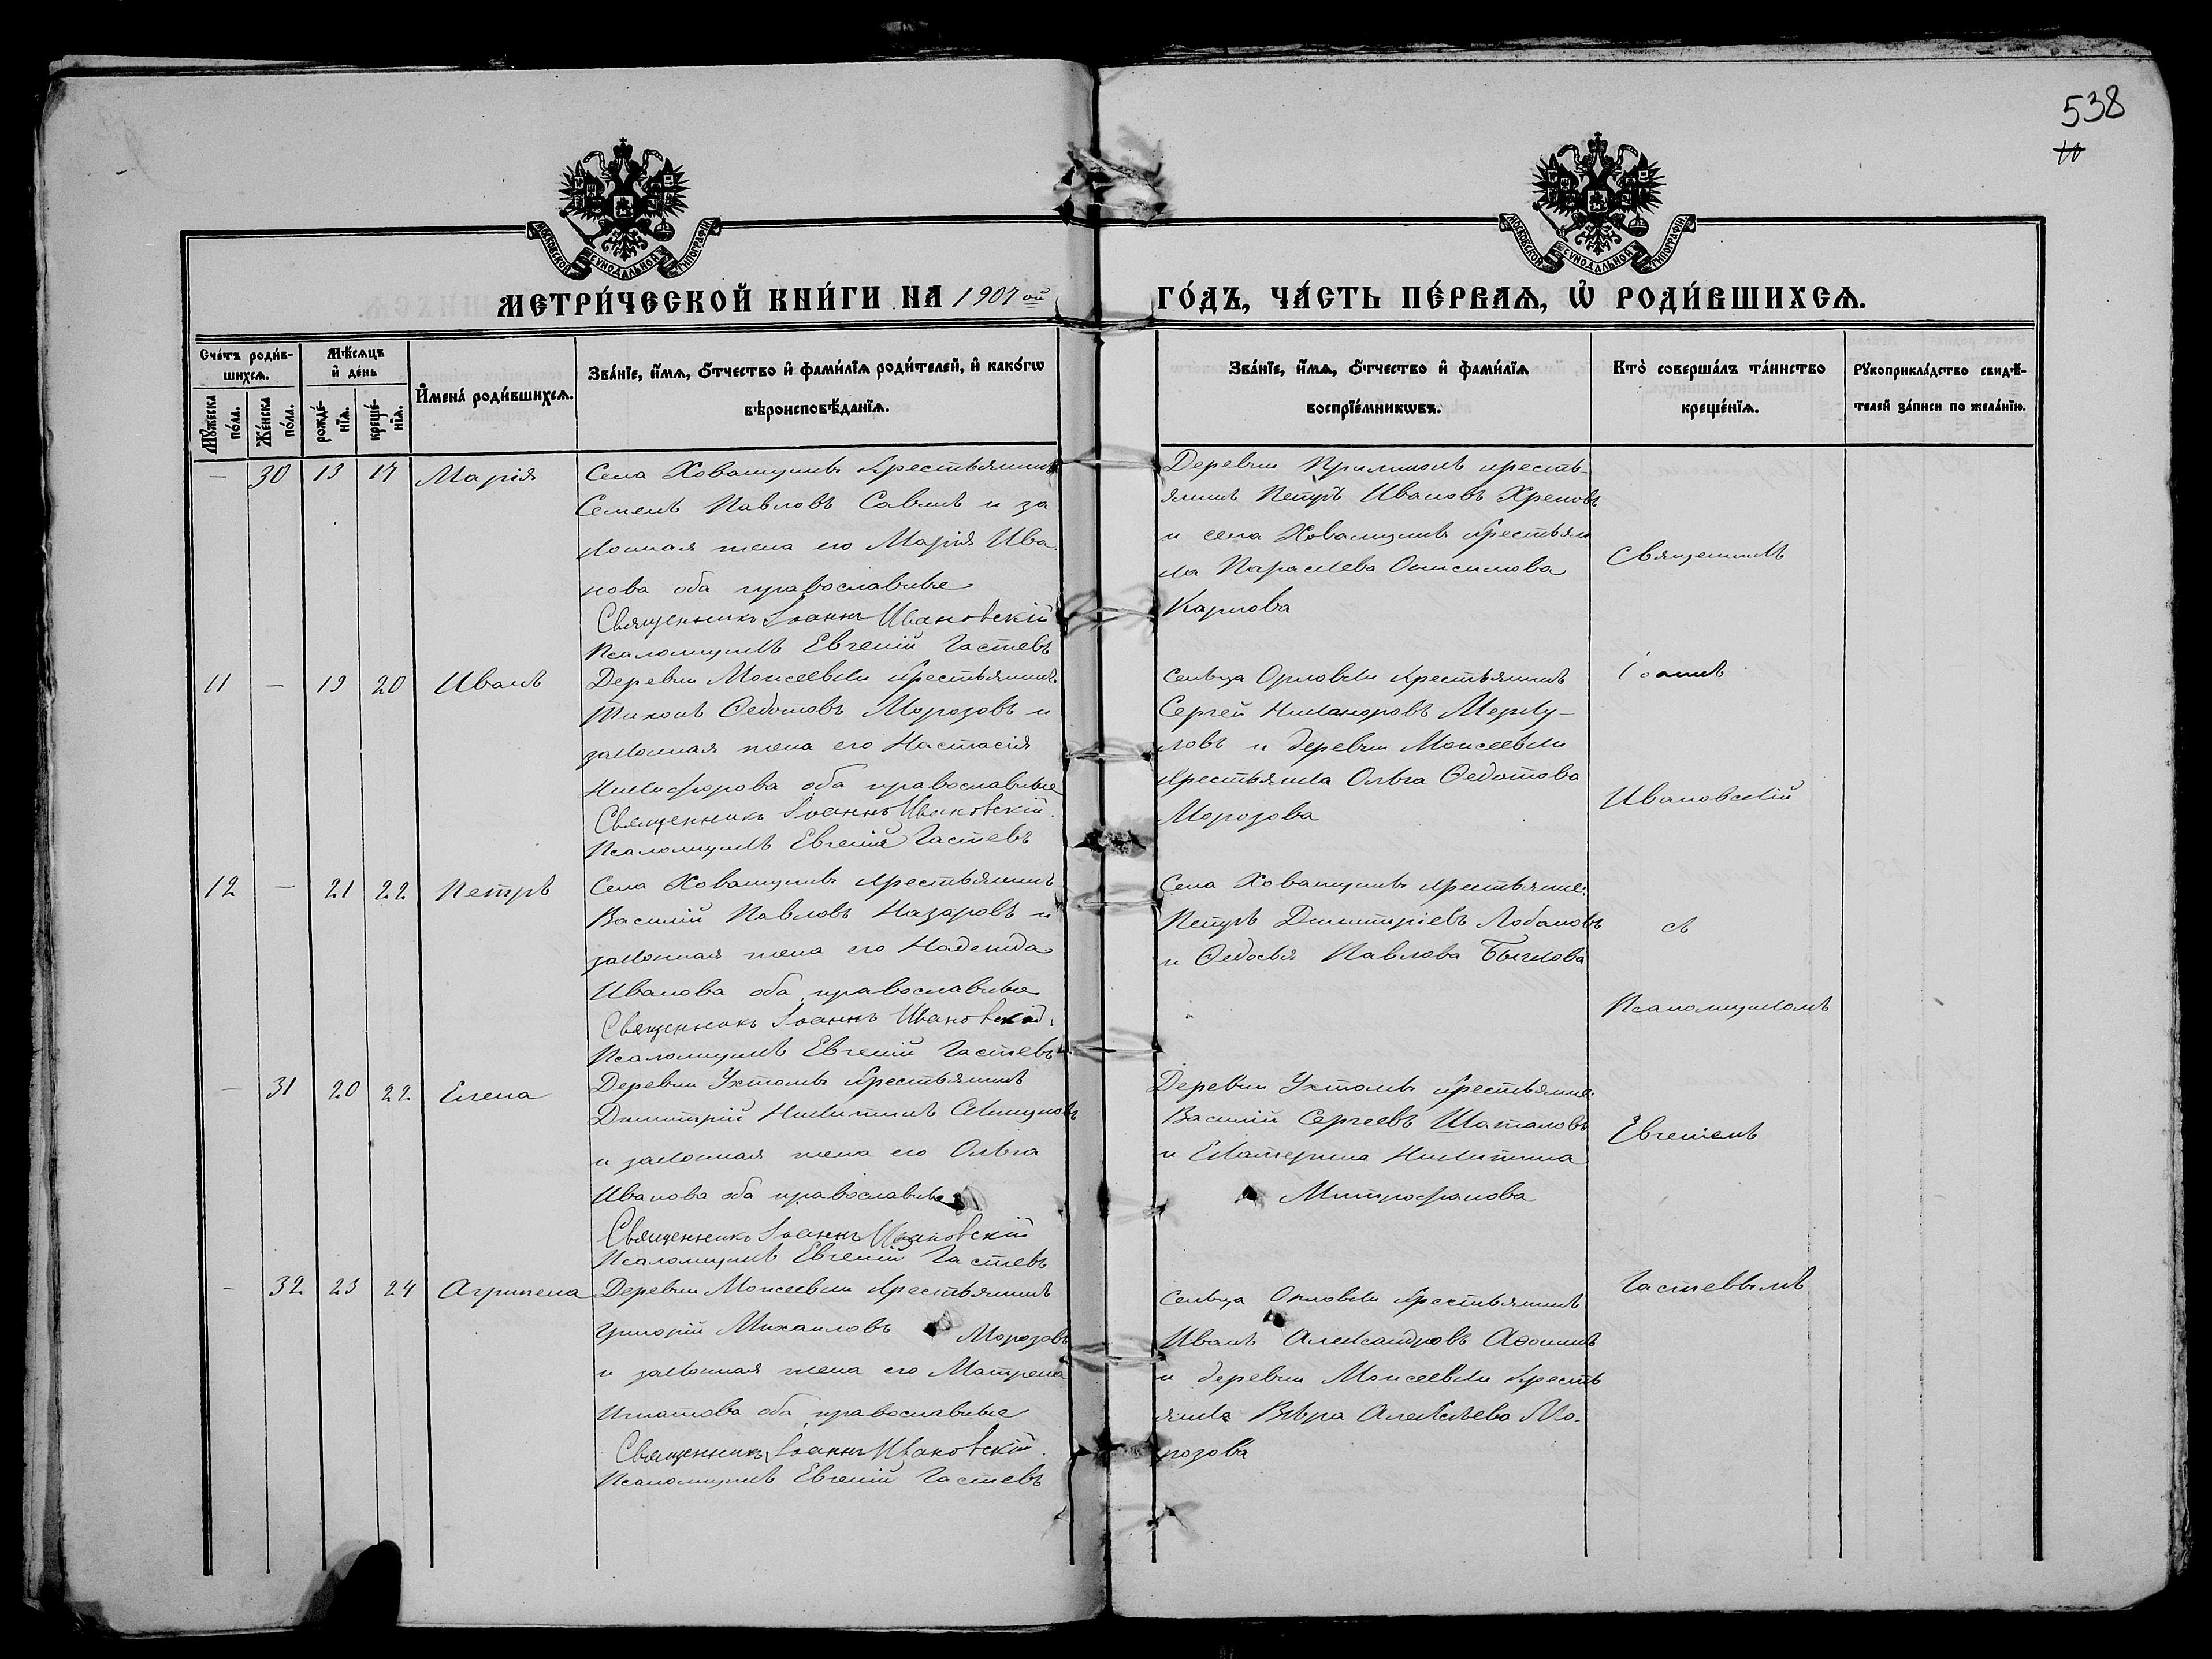 538
10
МОСКОВСКОЙ СѴНОДАЛЬНОЙ ТИПОГРАФІИ
МОСКОВСКОЙ СѴНОДАЛЬНОЙ ТИПОГРАФІИ
МЕТРИ́ЧЕСКОЙ КНИ́ГИ НА 1907 ой ГО́ДЪ, ЧА́СТЬ ПЕ́РВАѦ, Ѽ РОДИ́ВШИХСѦ.
Сче́тъ роди́в-
шихсѧ.
Мѣ́сѧцъ
и҆ де́нь
Мꙋ́жеска по́ла.
Же́нска по́ла.
рожде́-
нїѧ.
креще́-
нїѧ.
И҆мена̀ роди́вшихсѧ.
Зва́нїе, и҆́мѧ, ѻ҆́тчество и҆ фами́лїѧ роди́телей, и҆ како́гѡ
вѣроисповѣ́данїѧ.
Зва́нїе, и҆́мѧ, ѻ҆́тчество и҆ фами́лїѧ
воспрїе́мникѡвъ.
Кто̀ соверша́лъ та́инство
креще́нїѧ.
Рꙋкоприкла́дство свидѣ́-
телей за́писи по жела́нїю.
— 30 13 17 Марія
Села Ховащинъ крестьянинъ
Семенъ Павловъ Савинъ и за
конная жена его Марія Ива
нова оба православные
Священникъ Іоаннъ Ивановскій
Псаломщикъ Евгеній Гастевъ
Деревни кресть-
янинъ Петръ Ивановъ Хреновъ
и села Ховащинъ крестьян
ка Параскева Онисимова
Карпова
Священникъ
11 — 19 20 Иванъ
Деревни Моисеевки крестьянинъ
Тихонъ Федотовъ Морозовъ и
законная жена его Настасія
Никифорова оба православные
Священникъ Іоаннъ Ивановскій.
Псаломщикъ Евгеній Гастевъ
сельца Орловки крестьянинъ
Сергей Никаноровъ Мерку-
ловъ и деревни Моисеевки
крестьянка Ольга Федотова
Морозова
Іоаннъ
Ивановскій
12 — 21 22 Петръ
Села Ховащинъ крестьянинъ
Василій Павловъ Назаровъ и
законная жена его Надежда
Иванова оба православные
Священникъ Іоаннъ Ивановскій.
Псаломщикъ Евгеній Гастевъ
Села Ховащинъ крестьяне:
Петръ Димитріевъ Лобановъ
и Федосья Павлова Бычкова
съ
Псаломщикомъ
— 31 20 22 Елена
Деревни Ухтомъ крестьянинъ
Димитрій Никитинъ
и законная жена его Ольга
Иванова оба православные
Священникъ Іоаннъ Ивановскій
Псаломщикъ Евгеній Гастевъ
Деревни Ухтомъ крестьяне:
Василій Сергеевъ Шаталовъ
и Екатерина Никитина
Митрофанова
Евгеніемъ
— 32 23 24 Агрипена
Деревни Моисеевки крестьянинъ
Григорій Михаиловъ Морозовъ
и законная жена его Матрена
Игнатова оба православные
Священникъ Іоаннъ Ивановскій.
Псаломщикъ Евгеній Гастевъ
сельца Орловки крестьянинъ
Иванъ Александровъ Афонинъ
и деревни Моисеевки кресть
янка Вѣра Алексѣева Мо-
розова
Гастевымъ